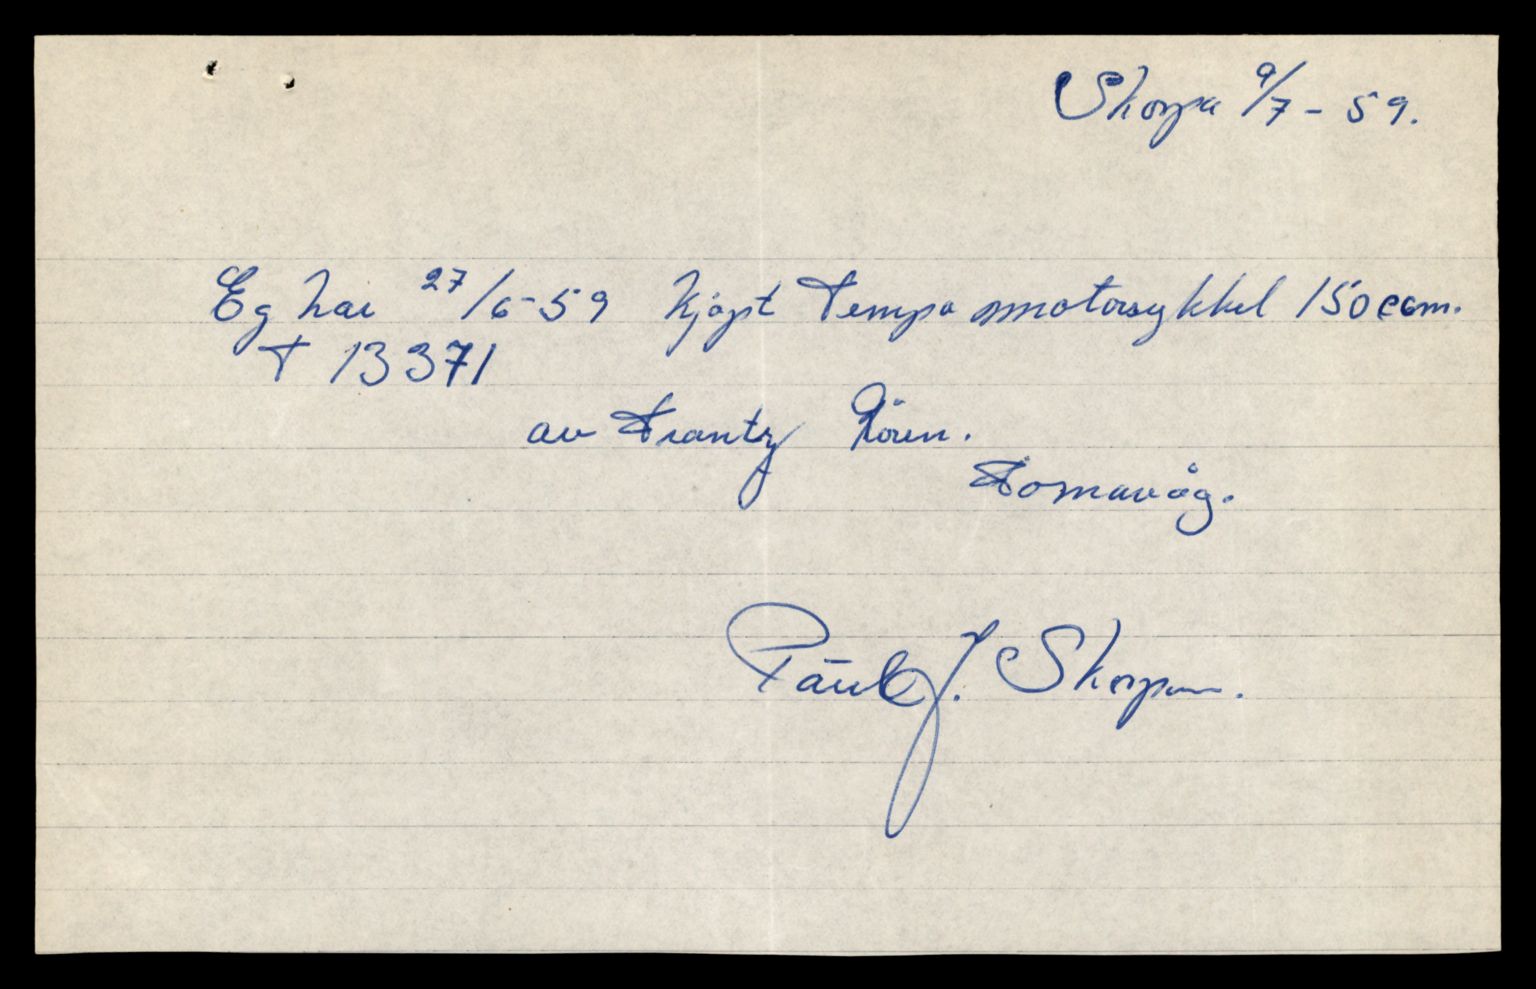 Skorpa 9/7 - 59.
Eg har 27/6-59 kjøpt Tempo motorsykkel 150 ccm.
T 13371
av Frantz Røren.
Tomavåg.
Paul J. Skorpen.